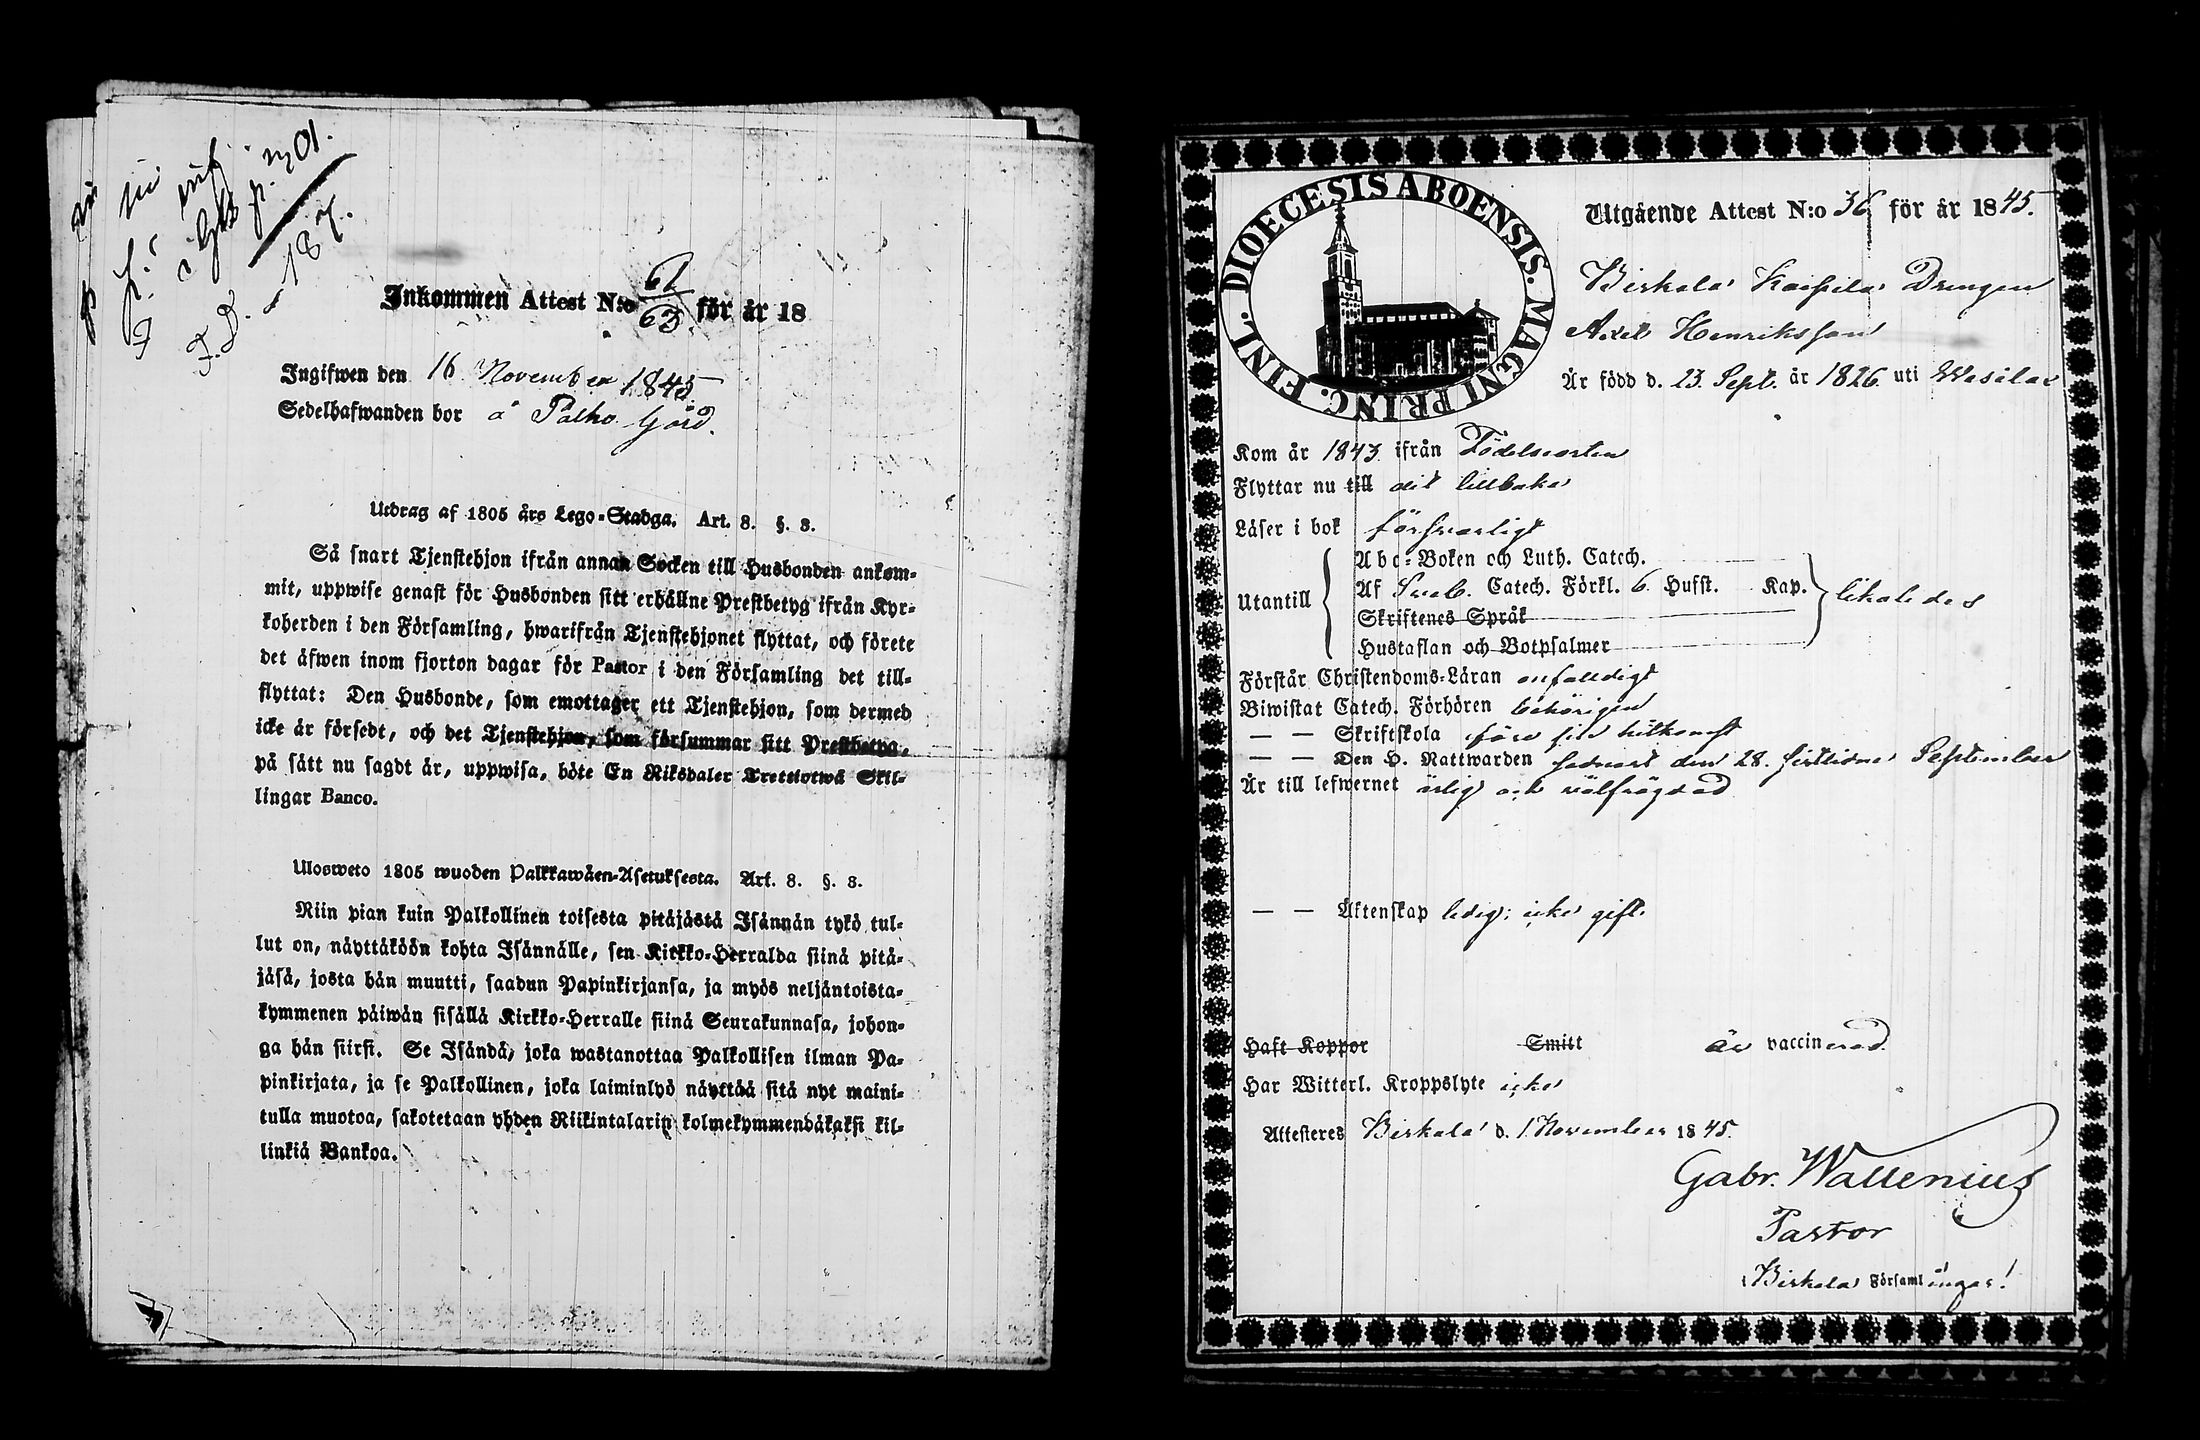 Inkommen Attest N:o 62/63. för år 18
Ingifwen den 16 November 1845
Sedelhafwanden bor å Palho Gård.
Utdrag af 1805 års Lego-Stadga. Art. 8. §. 3.
Så snart Tjenstehjon ifrån annan Socken till Husbonden ankom-
mit, uppwise genast för Husbonden sitt erhållne Prestbetyg ifrån Kyr-
koherden i den Församling, hwarifrån Tjenstehjonet flyttat, och förete
det äfwen inom fjorton dagar för Pastor i den Församling det till-
flyttat: Den Husbonde, som emottager ett Tjenstehjon, som dermed
icke är försedt, och det Tjenstehjon, som försummar sitt Prestbetyg,
på sätt nu sagdt är, uppwisa, böte En Riksdaler Trettiotwå Skil-
lingar Banco.
Ulosweto 1805 wuoden Palkkawäen-Asetuksesta. Art. 8. §. 3.
Niin pian kuin Palkollinen toisesta pitäjästä Isännän tykö tul-
lut on, näyttäköön kohta Isännälle, sen Kirkko-Herralda siinä pitä-
jäsä, josta hän muutti, saadun Papinkirjansa, ja myös neljäntoista-
kymmenen päiwän sisällä Kirkko-Herralle siinä Seurakunnasa, johon-
ga hän siirsi. Se Isändä, joka wastanottaa Palkollisen ilman Pa-
pinkirjata, ja se Palkollinen, joka laiminlyö näyttää sitä nyt maini-
tulla muotoa, sakotetaan yhden Riikintalarin kolmekymmendäkaksi kil-
linkiä Bankoa.
DIOECESIS ABOENSIS. MAGNI PRINC. FINL.
Utgående Attest N:o 36 för år 1845.
Birkala Kaipila Drengen
Axel Henriksson
Är född d. 23. Sept. år 1826 uti Wesilax
Kom år 1843 ifrån Födelseorten
Flyttar nu till dit tillbaka
Läser i bok försvarligt
Utantill
Abc-Boken och Luth. Catech.
Af Sveb. Catech. Förkl. 6 Hufst. Kap. likaledes
Skriftenes Språk
Hustaflan och Botpsalmer
Förstår Christendoms-Läran enfaldigt
Biwistat Catech. Förhören behörigen
— — Skriftskola före sin hitkomst
— — Den H. Nattwarden sednast den 28. sistledne September
Är till lefwernet ärlig och välfrägdad
— — Äktenskap ledig; icke gift.
Haft Koppor Smitt är vaccinerad
Har Witterl. Kroppslyte icke
Attesteres Birkala d. 1 November 1845.
Gabr. Wallenius
Pastor
i Birkala Församlingar!